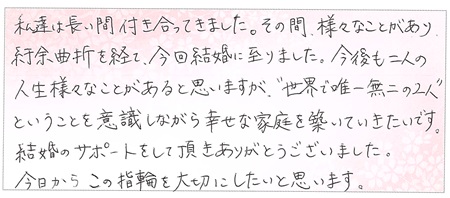 私達は長い間付き合ってきました。その間、様々なことがあり
紆余曲折を経て、今回結婚に至りました。今後も二人の
人生様々なことがあると思いますが、"世界で唯一無二の2人"
ということを意識しながら幸せな家庭を築いていきたいです。
結婚のサポートをして頂きありがとうございました。
今日から この指輪を大切にしたいと思います。